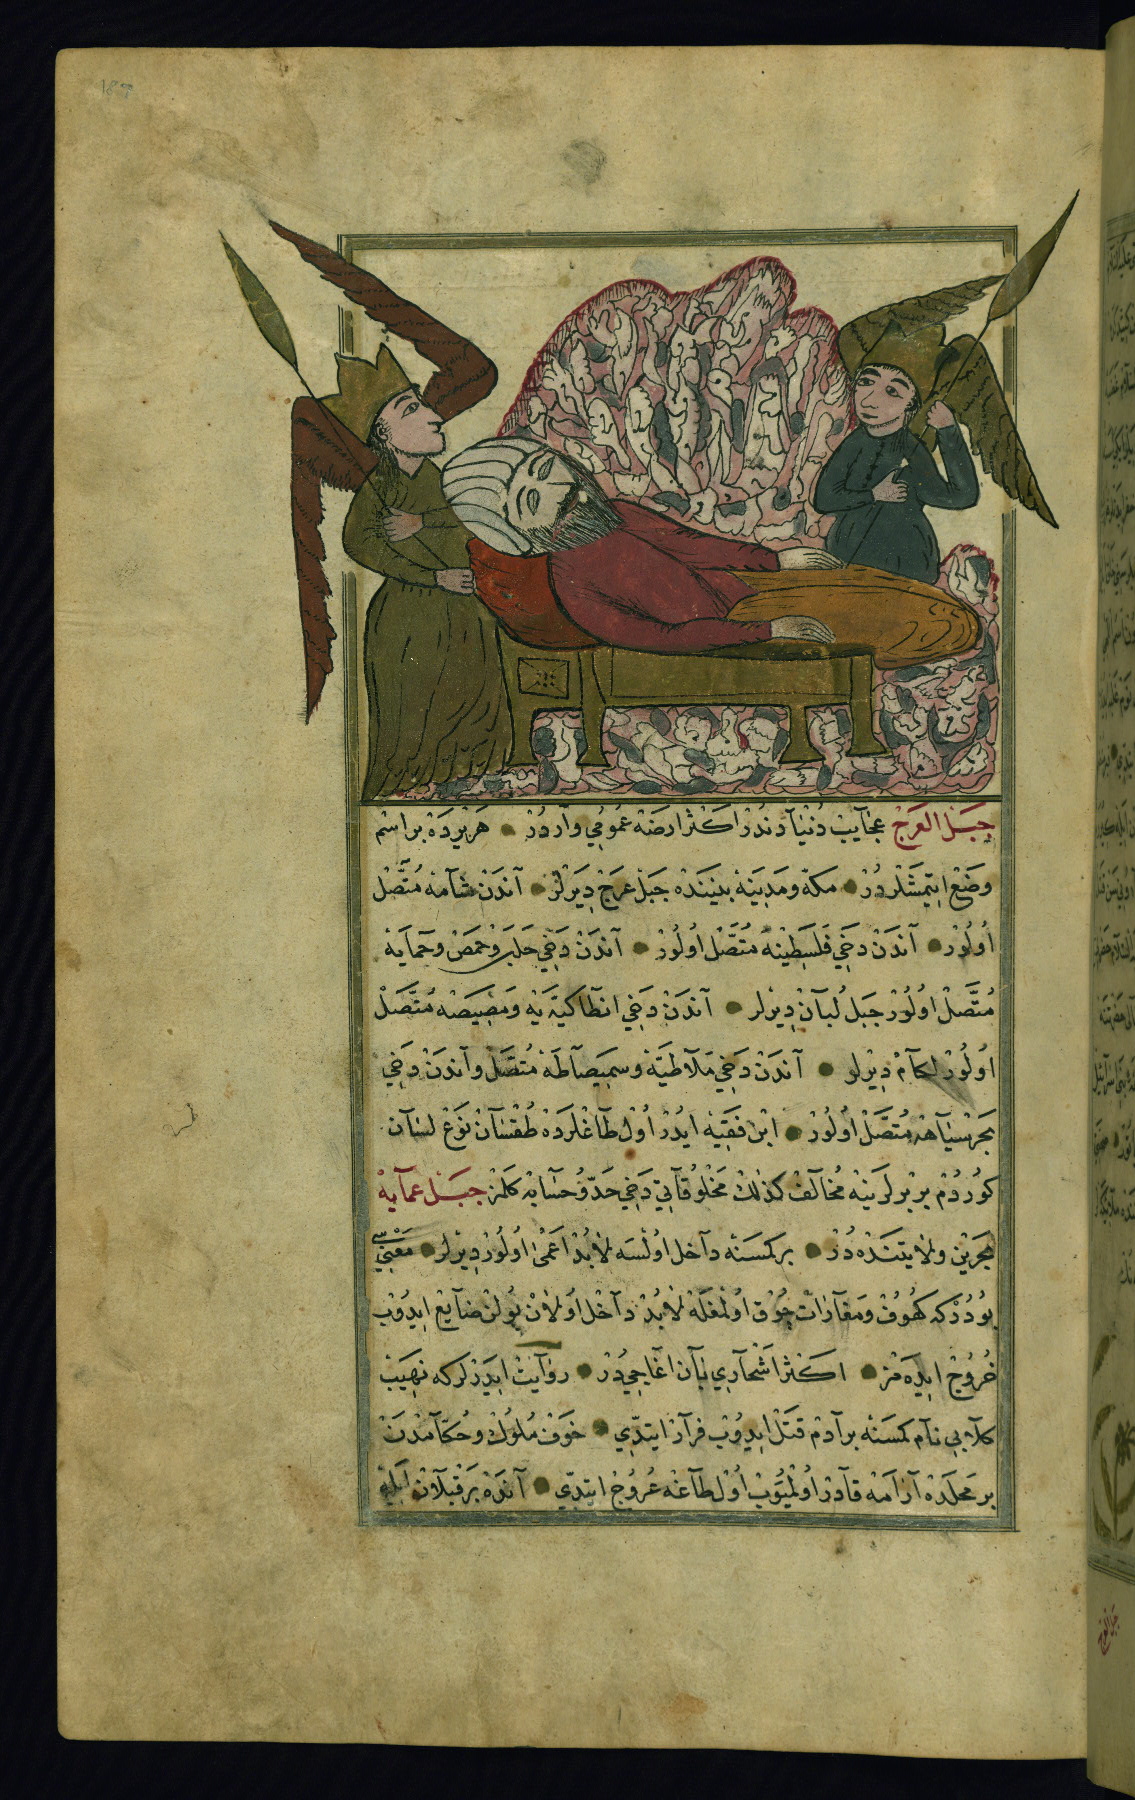 جبل العرج عجايب دنيادندر اكثر ارضه عمومي واردر هر يرده بر اسم
وضع ايتمشلردر مكه و مدينه بيننده جبل عرج ديرلر آندن شامه متصل
اولور آندن دخي فلسطينه متصل اولور آندن دخي حلب و حمص و حمايه
متصل اولور جبل لبنان ديرلر آندن دخي انطاكيه يه و مصيصه متصل
اولور لكام ديرلر آندن دخي ملاطيه و سميصاطه متصل و آندن دخي
بحر سياهه متصل اولور ابن فقيه ايدر اول طاغلرده طقسان نوع لسان
كوردم بر برلرينه مخالف كذلك مخلوقاتي دخي حد و حسابه كلمز جبل عمايه
بحرين ولايتنده در بر كسنه داخل اولسه لابد اعمى اولور ديرلر معنيسي
بودر كه كهوف و مغارات چوق اولمغله لابد داخل اولان يولن ضايع ايدوب
خروج ايده مز اكثر اشجاري بان اغاجيدر روايت ايدرلر كه نهيب
كلابي نام كمسنه بر آدم قتل ايدوب فرار ايتدي خوف ملوك و حكامدن
بر محلده آرامه قادر اولميوب اول طاغه عروج ايتدي آنده بر قبلان ايله